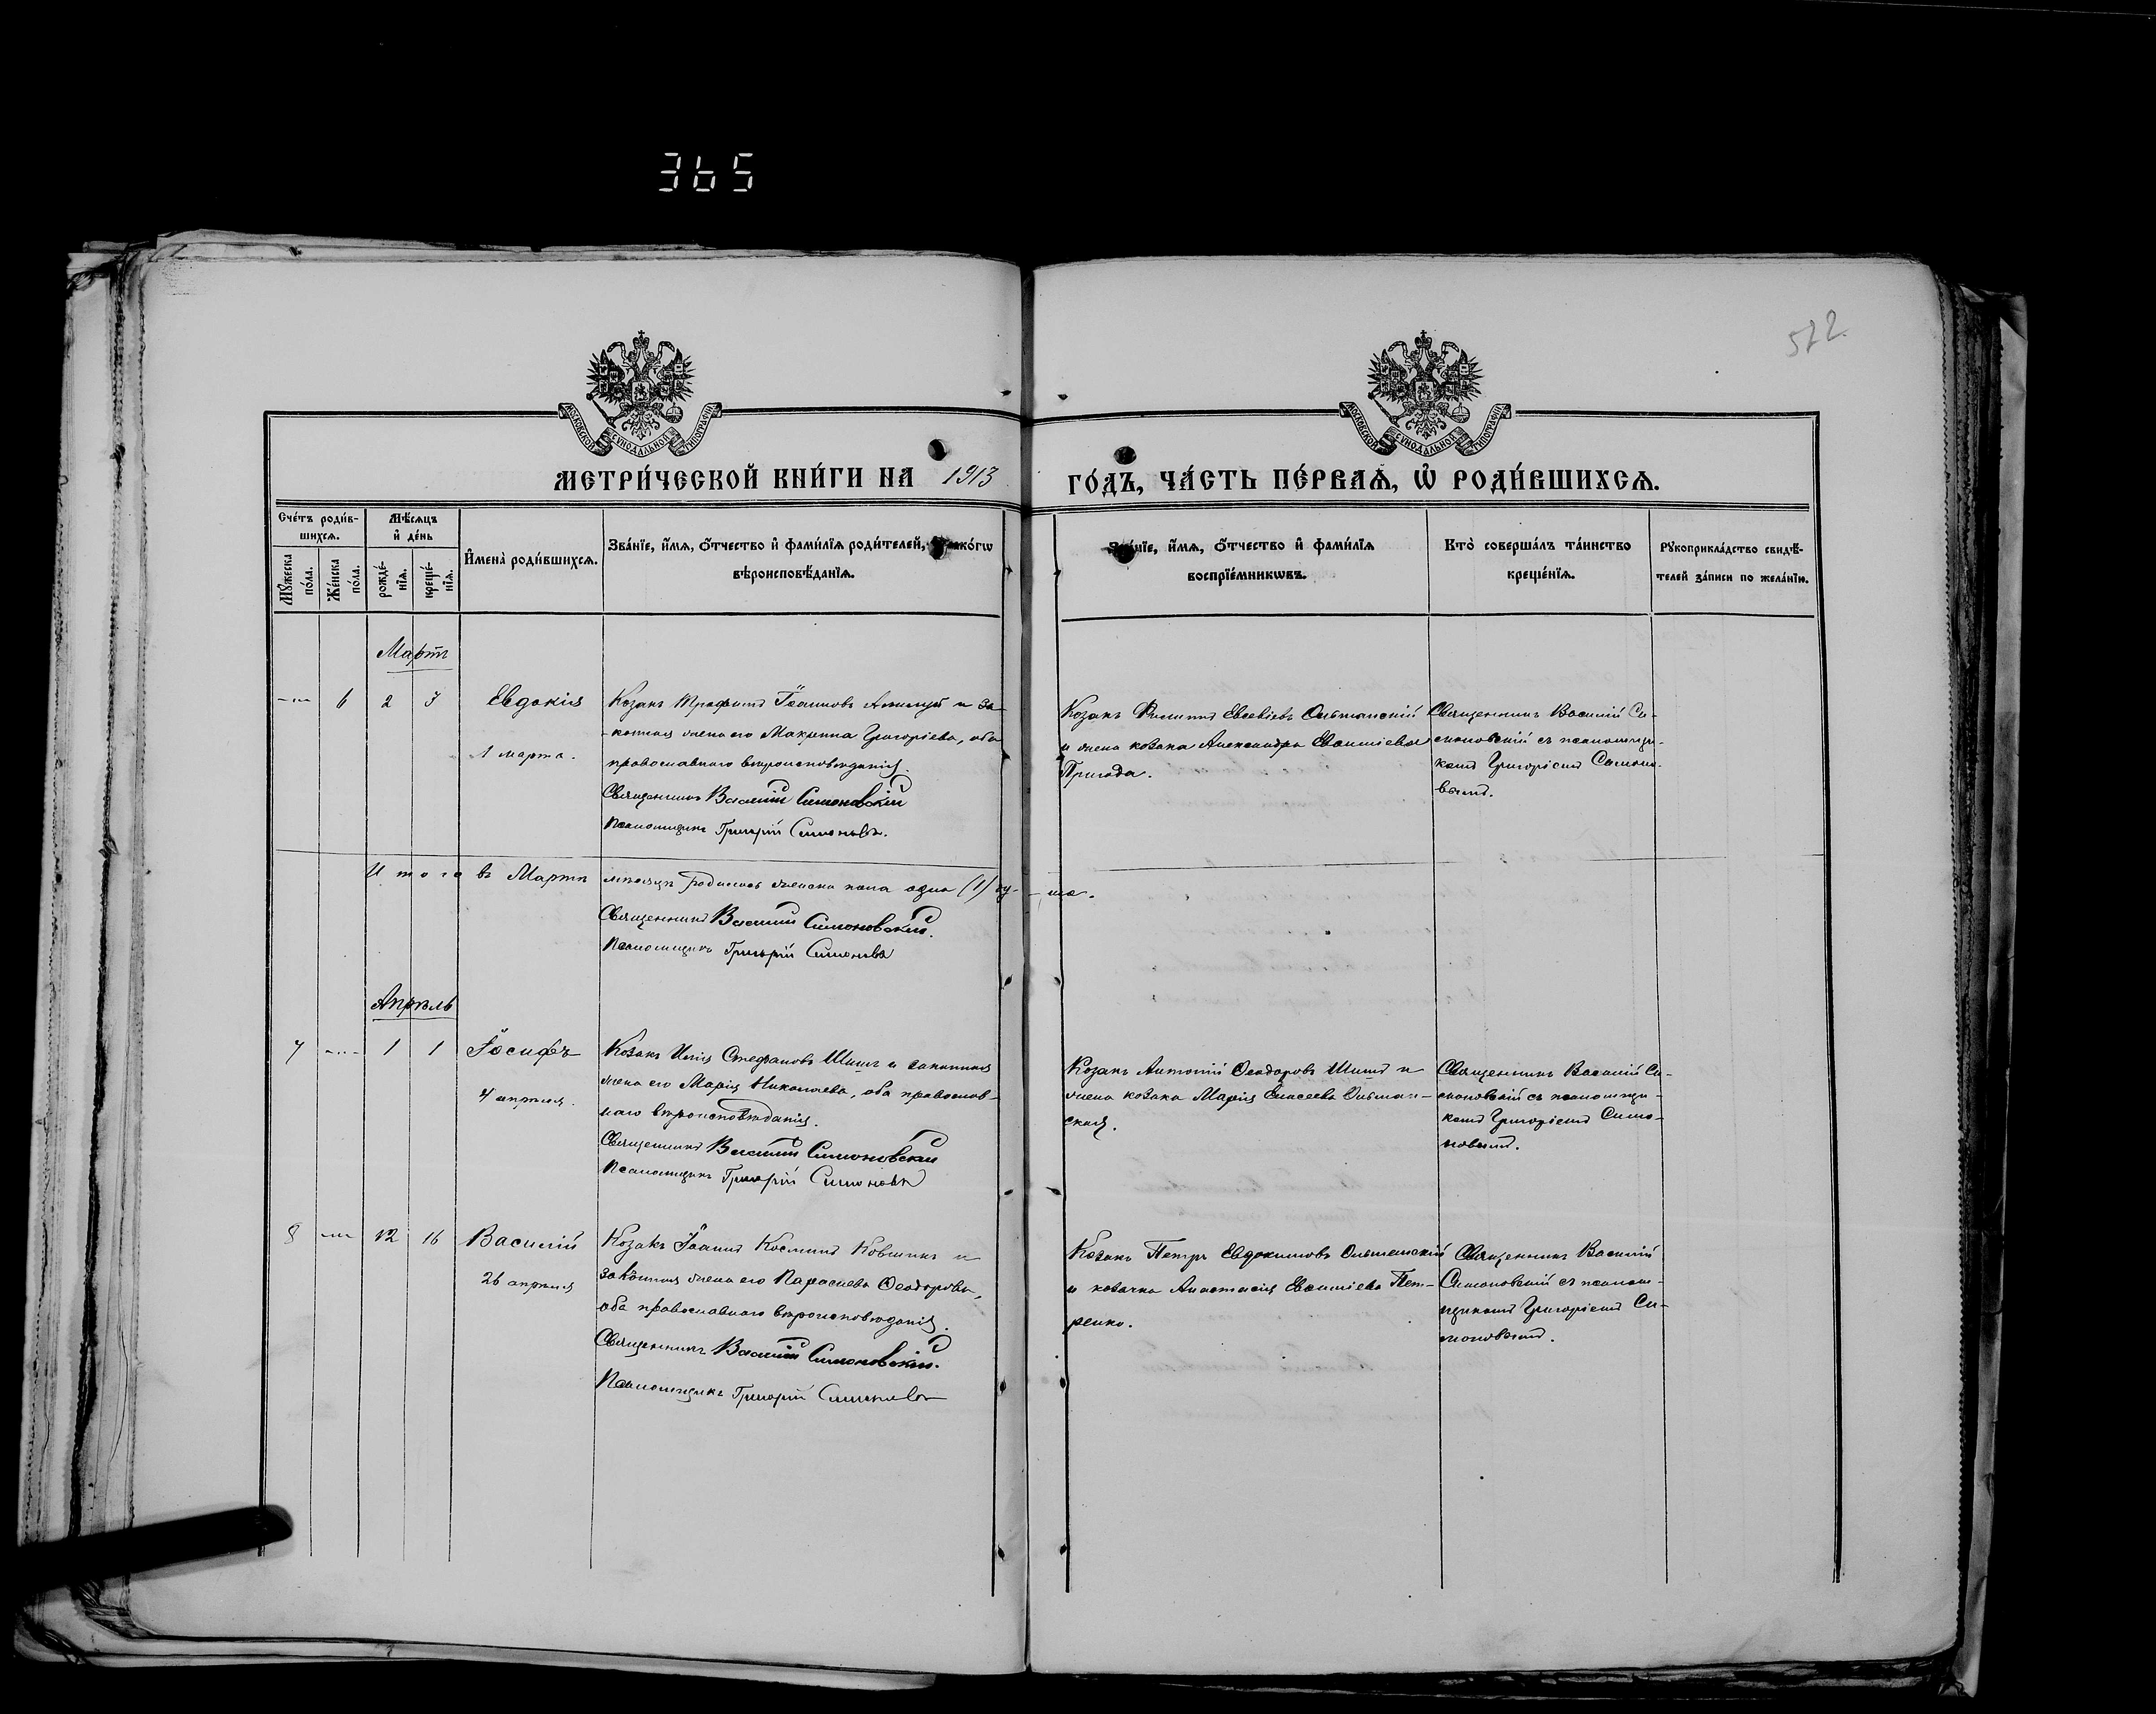 365
522
МОСКОВСКОЙ СѴНОДАЛЬНОЙ ТИПОГРАФІИ
МОСКОВСКОЙ СѴНОДАЛЬНОЙ ТИПОГРАФІИ
МЕТРИ́ЧЕСКОЙ КНИ́ГИ НА 1913
ГО́ДЪ, ЧА́СТЬ ПЕ́РВАѦ, Ѡ҆ РОДИ́ВШИХСѦ.
Сче́тъ роди́в-
шихсѧ.
Мꙋ́жеска
по́ла.
Же́нска
по́ла.
Мѣ́сѧцъ
и҆ де́нь
рожде́-
нїѧ.
креще́-
нїѧ.
И҆мена̀ роди́вшихсѧ.
Зва́нїе, и҆́мѧ, ѻ҆́тчество и҆ фами́лїѧ роди́телей, и҆ како́гѡ
вѣроисповѣ́данїѧ.
Зва́нїе, и҆́мѧ, ѻ҆́тчество и҆ фами́лїѧ
воспрїе́мникѡвъ.
Кто̀ соверша́лъ та́инство
креще́нїѧ.
Рꙋкоприкла́дство свидѣ́-
телей за́писи по жела́нїю.
Мартъ
6 2 3 Евдокія
1 марта.
Козакъ Трофимъ Іоанновъ и за-
конная жена его Макрина Григоріева, оба
православнаго вѣроисповѣданія.
Священникъ Василій Симоновскій
Псаломщикъ Григорій Симоновъ.
Козакъ Филиппъ Евсевіевъ Ольшанскій
и жена козака Александра Евфиміева
Пригода.
Священникъ Василій Си-
моновскій съ псаломщи-
комъ Григоріемъ Симоно-
вымъ.
Итого въ Мартѣ мѣсяцѣ родилась женска пола одна (1) ду-ша.
Священникъ Василій Симоновскій.
Псаломщикъ Григорій Симоновъ
Апрѣль
7 1 1 Іосифъ
4 апрѣля.
Козакъ Илія Стефановъ Шишъ и законная
жена его Марія Николаева, оба православ-
наго вѣроисповѣданія.
Священникъ Василій Симоновскій
Псаломщикъ Григорій Симоновъ
Козакъ Антоній Ѳеодоровъ Шишъ и
жена козака Марія Елисеева Ольшан-
ская.
Священникъ Василій Си-
моновскій съ псаломщи-
комъ Григоріемъ Симо-
новымъ.
8 12 16 Василій
26 апрѣля
Козакъ Іоаннъ Косминъ Ковшикъ и
законная жена его Параскева Ѳеодорова,
оба православнаго вѣроисповѣданія.
Священникъ Василій Симоновскій.
Псаломщикъ Григорій Симоновъ
Козакъ Петръ Евдокимовъ Ольшанскій
и козачка Анастасія Евфиміева Пет-
ренко.
Священникъ Василій
Симоновскій съ псалом-
щикомъ Григоріемъ Си-
моновымъ.